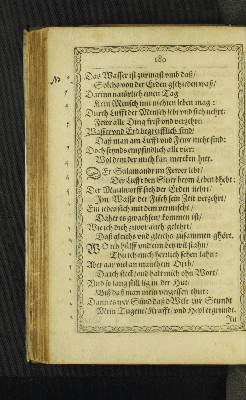 180
Das Wasser ist zur mast vnnd daß/
Solchs von der Erden gschieden waß/
Darinn natürlich einen Tag
Kein Mensch mit nichten leben mag:
Durch Lufft der Mensch lebt vnd sich nehrt:
Fewr alle Ding frist vnd verzehrt:
Wasser vnd Erd begreifflich sind/
Daß man am Lufft vnd Fewr nicht find:
Doch seynds empfindlich alle vier:
Wol dem der mich kan mercken hier.
Der Salamandr im Fewer lebt/
Der Lufft den Stier beym Leben
Der Maulworff sich der Erden nehrt/
Im Wasser der Fisch sein Zeit verzehrt/
Ein jedes sich mit dem vermischt/
Daher es gwachsen kommen ist/
Wie ich dich zuvor auch gelehrt/
Daß gleichs vnd gleichs zusammen ghört.
Wo ich hülff vnd von dir wil stahn/
Thu ich mich heimlich sehen lahn:
Aber gar viel an manchem Orth/
Da ich steck/ vnd halt mich ohn Wort/
Vnd so lang still lig in der Hut/
Biß daß man mein vergessen thut:
Dann es wer Sünd daß d Welt zur Stundt
Mein Tugent/ Krafft/ vnd Heyl ergrundt.
In